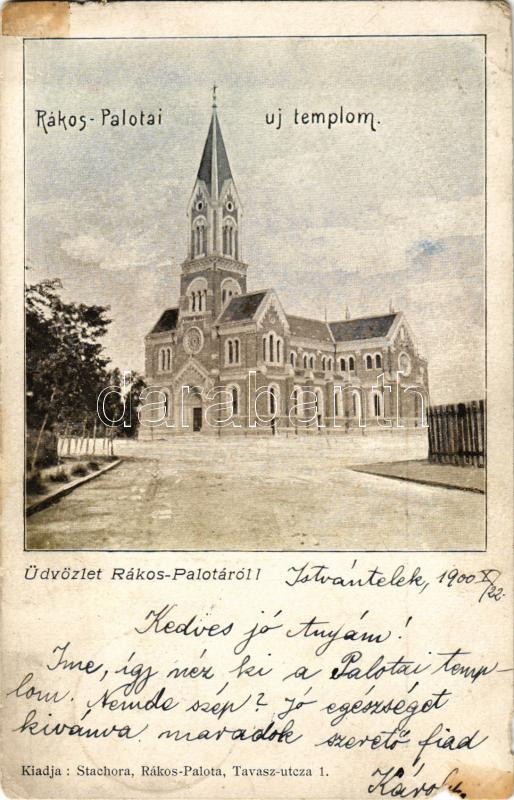 Rákos-Palotai uj templom.
darabanth
Üdvözlet Rákos-Palotáról!
Istvántelek, 1900 X/22.
Kedves jó Anyám!
Ime, így néz ki a Palotai temp-
lom. Nemde szép? Jó egészséget
kivánva maradok szerető fiad
Károly.
Kiadja : Stachora, Rákos-Palota, Tavasz-utcza 1.